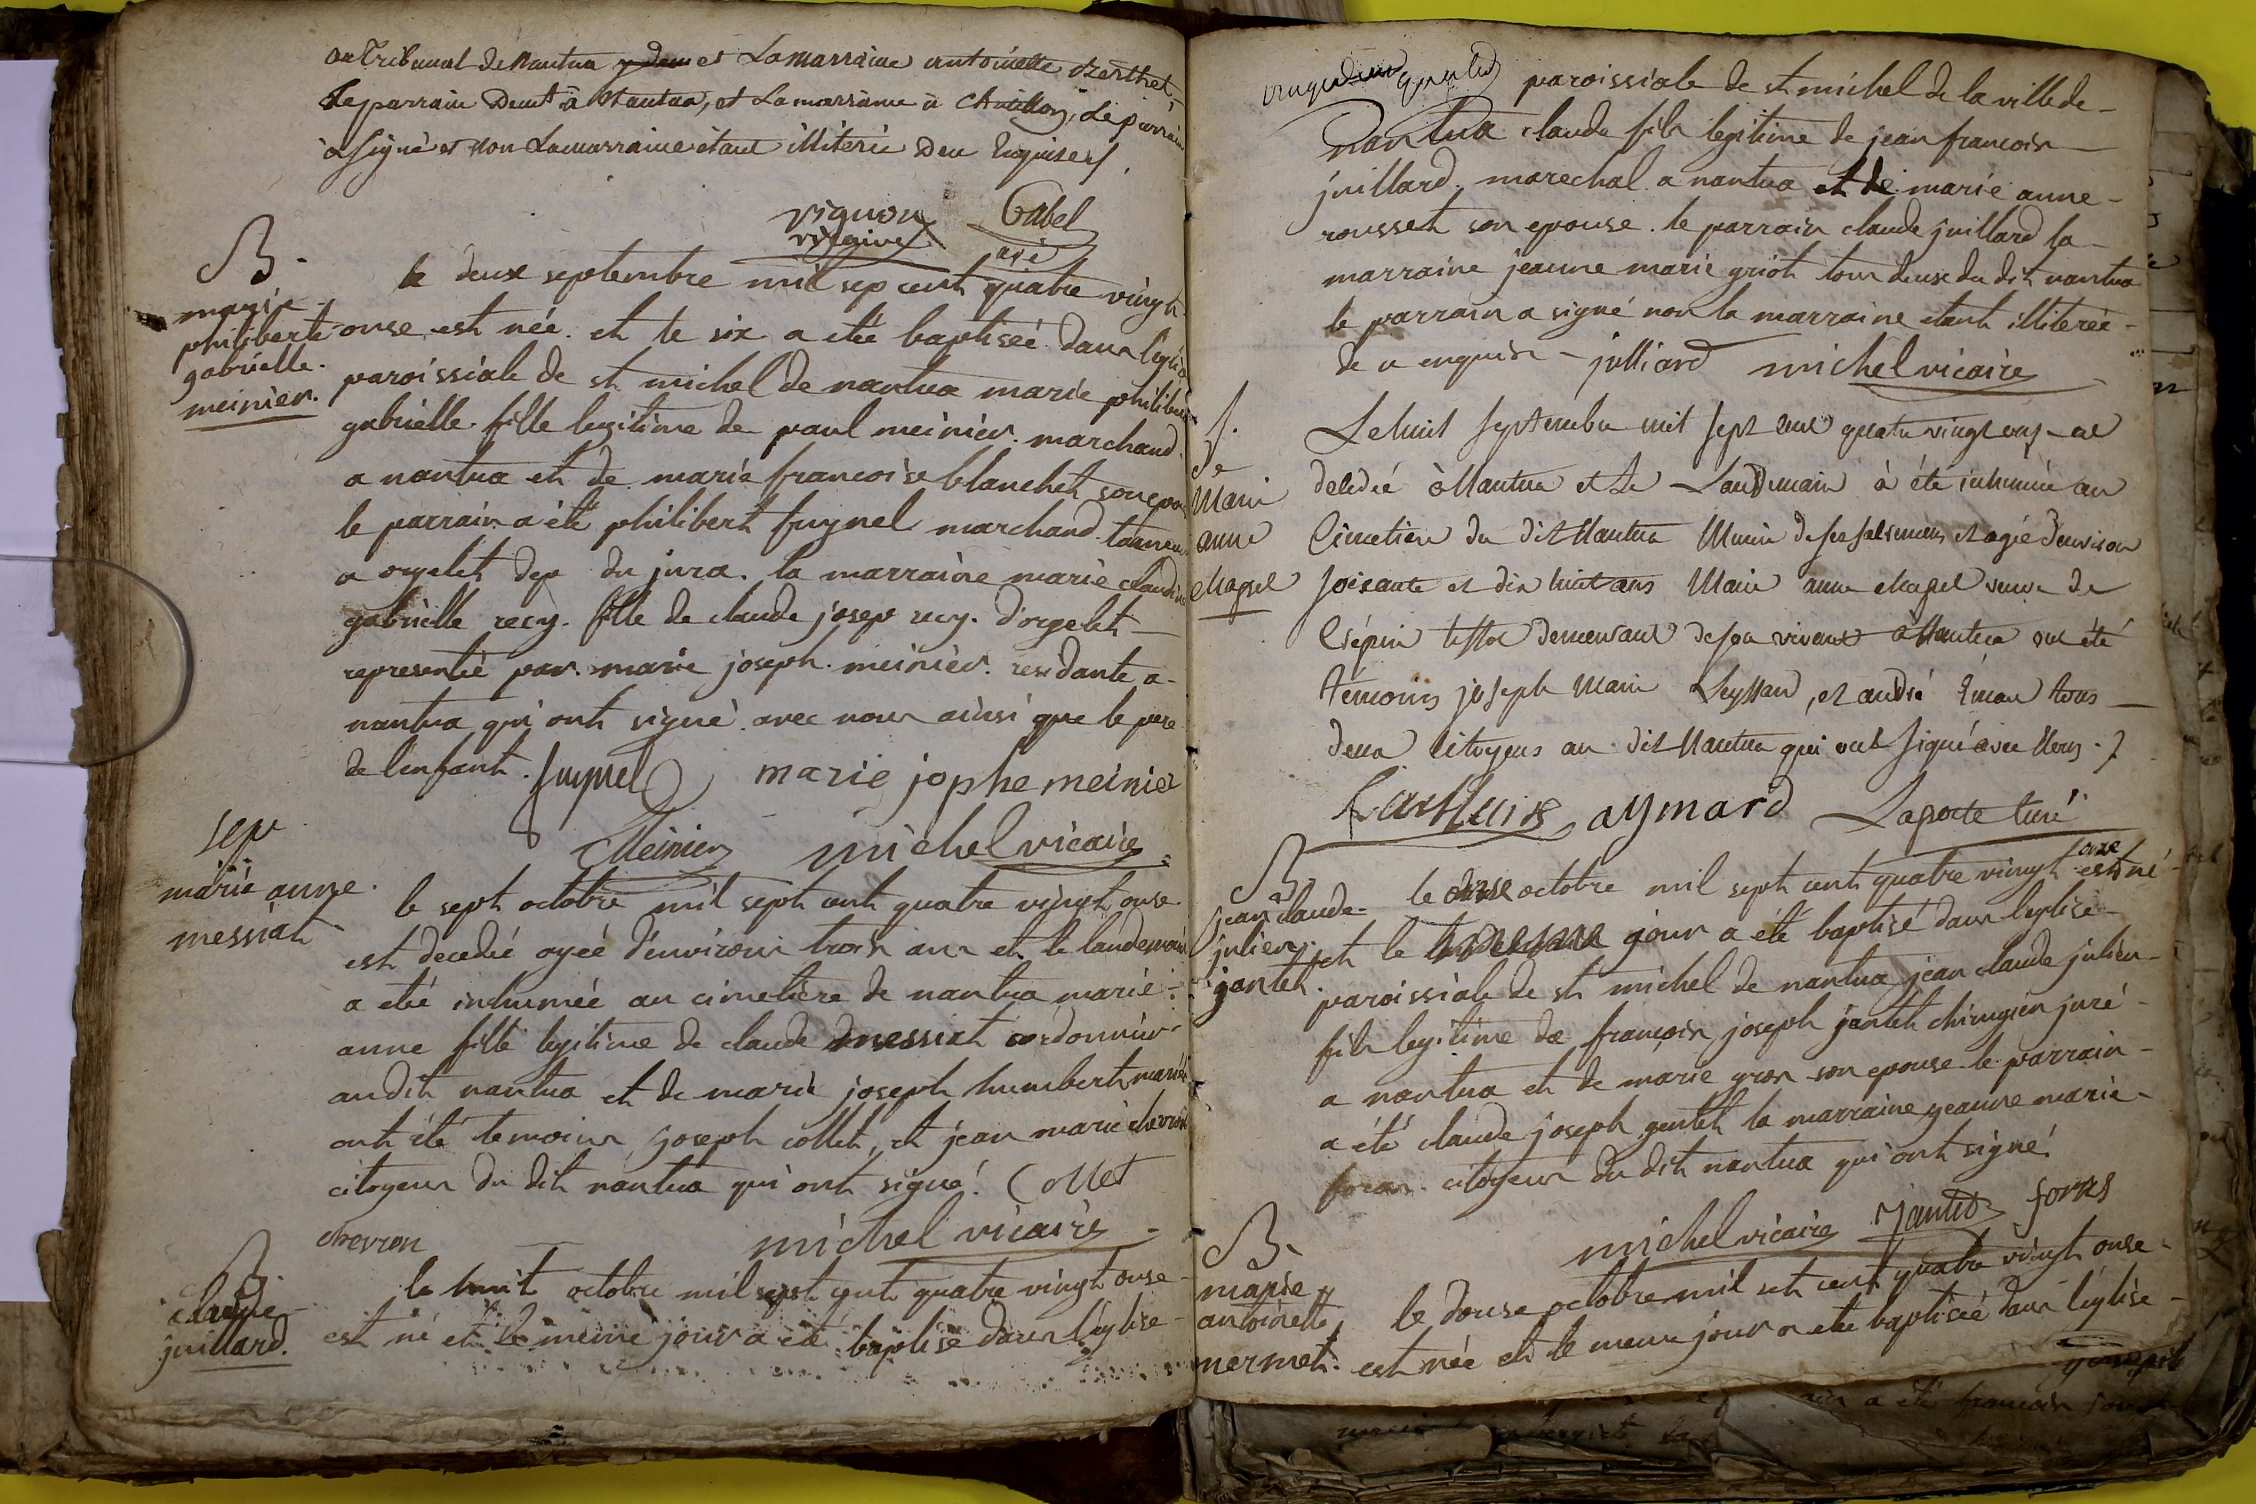 au Tribunal de Nantua et La marraine antoinette Berthet,
Le parrain Demt à Nantua, et La marraine à Chatillon, Le parrain
a signé et non La marraine étant illiterée Deu Enquise
vignon Cabel
B.
marie
philiberte
gabrielle.
meinier.
le deux septembre mil sep cent quatre vingt
onse est née. et le six a eté baptiseé dans l'eglise
paroissiale de st michel de nantua marie philiberte
gabrielle. fille legitime de paul meinier. marchand.
a nantua et de marie francoise blanchet son epouse
le parrain a été philibert fuynel marchand. tanneur
a orgelet dep du jura. la marraine marie claudine
gabrielle recy. fille de claude josep recy. d'orgelet
representée par. marie joseph. meinier. residante a
nantua qui ont signé. avec nous ainsi que le pere
de l'enfant. fuynel marie jophe meinier
Meinier michel vicaire
sep
marie anne.
messiat
le sept octobre mil sept cent quatre vingt onse
est decedée ageé d'environs trois ans et le landemain
a eté inhumeé au cimetière de nantua marie
anne fille legitime de claude messiat cordonnier
au dit nantua et de marie joseph humbert mariés
ont été temoins joseph collet, et jean marie chevron
citoyens du dit nantua qui ont signé. Collet
chevron michel vicaire
B.
claude
juillard.
le huit octobre mil sept cent quatre vingt onse
est né et le meme jour a eté baptisé dans l'eglise
paroissiale de st michel de la ville de
nantua claude fils legitime de jean francois
juillard. marechal a nantua et de marie anne
rousset son epouse. le parrain claude juillard la
marraine jeanne marie griot tous deux du dit nantua
le parrain a signé non la marraine etant illitereé
de ce enquise julliard michel vicaire
S.
de
Marie
anne
chapel
Le huit Septembre mil sept cent quatre vingt onze est
décédée à Nantua et Le Landemain à été inhumée au
Cimetière du dit Nantua Munie de ses sacremens et agée d'environ
soixante et dix huit ans Marie anne chapel veuve de
Crépin demeurant de son vivant à Nantua ont été
témoins joseph Marie Leyssard, et andré Émard tous
deux Citoyens au dit Nantua qui ont signé avec Nous.
aymard Laporte Curé
B.
jean claude
julien.
jantet.
le onse octobre mil sept cent quatre vingt onze est né
et le jour a eté baptisé dans l'eglise
paroissiale de st michel de nantua jean claude julien
fils legitime de francois joseph jantet chirurgien juré
a nantua et de marie gros son epouse le parrain
a été claude joseph gentet la marraine jeanne marie
foras. citoyens du dit nantua qui ont signé.
michel vicaire Jantet foras
B.
marie
antoinette
mermet.
le douse octobre mil set cent quatre vingt onse
est née et le meme jour a eté baptiseé dans l'eglise